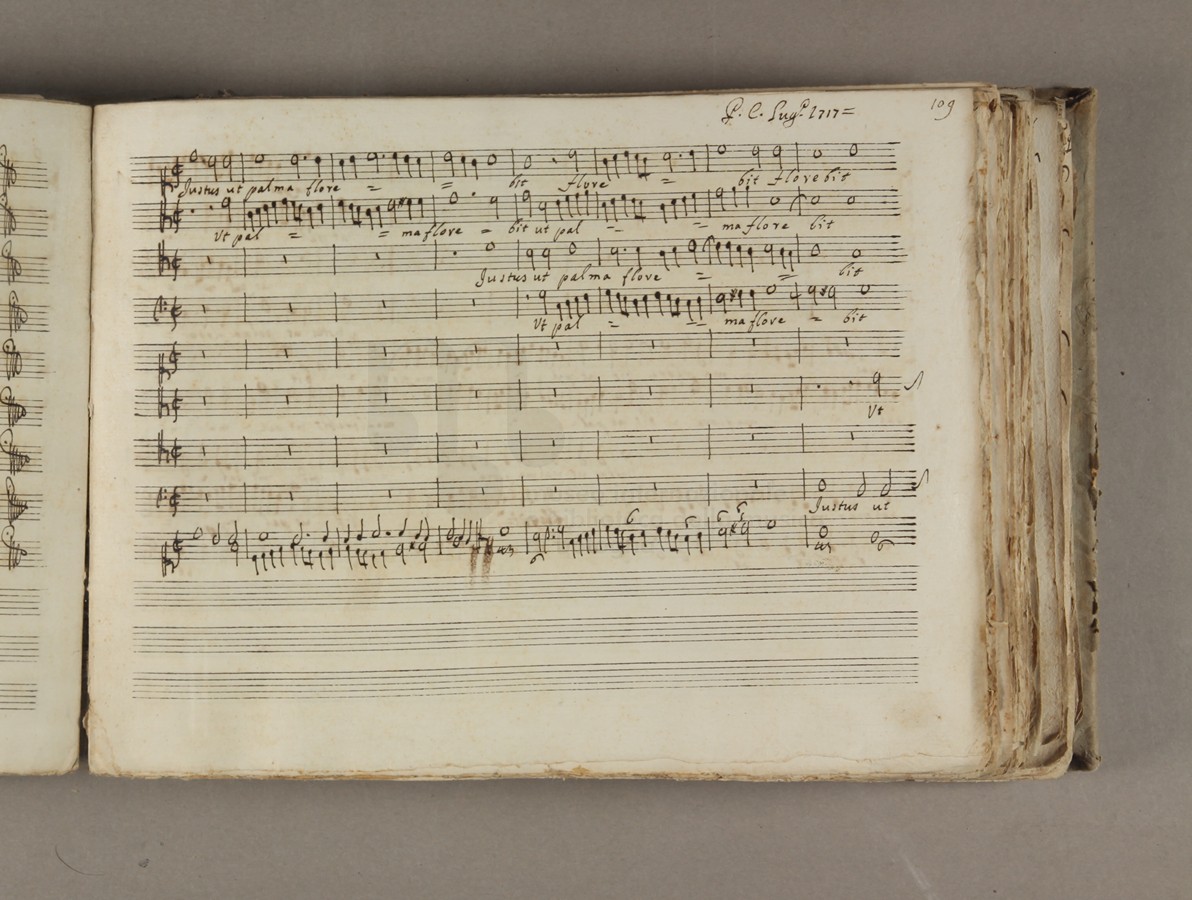 P. C. Lugo 1717=
109
Justus ut palma flore = = bit flore = bit florebit
Ut pal = = maflore = bit ut pal = = maflore bit
Justus ut palma flore = = bit
Ut pal = = maflore = bit
Ut
Justus ut
6 6 6 6